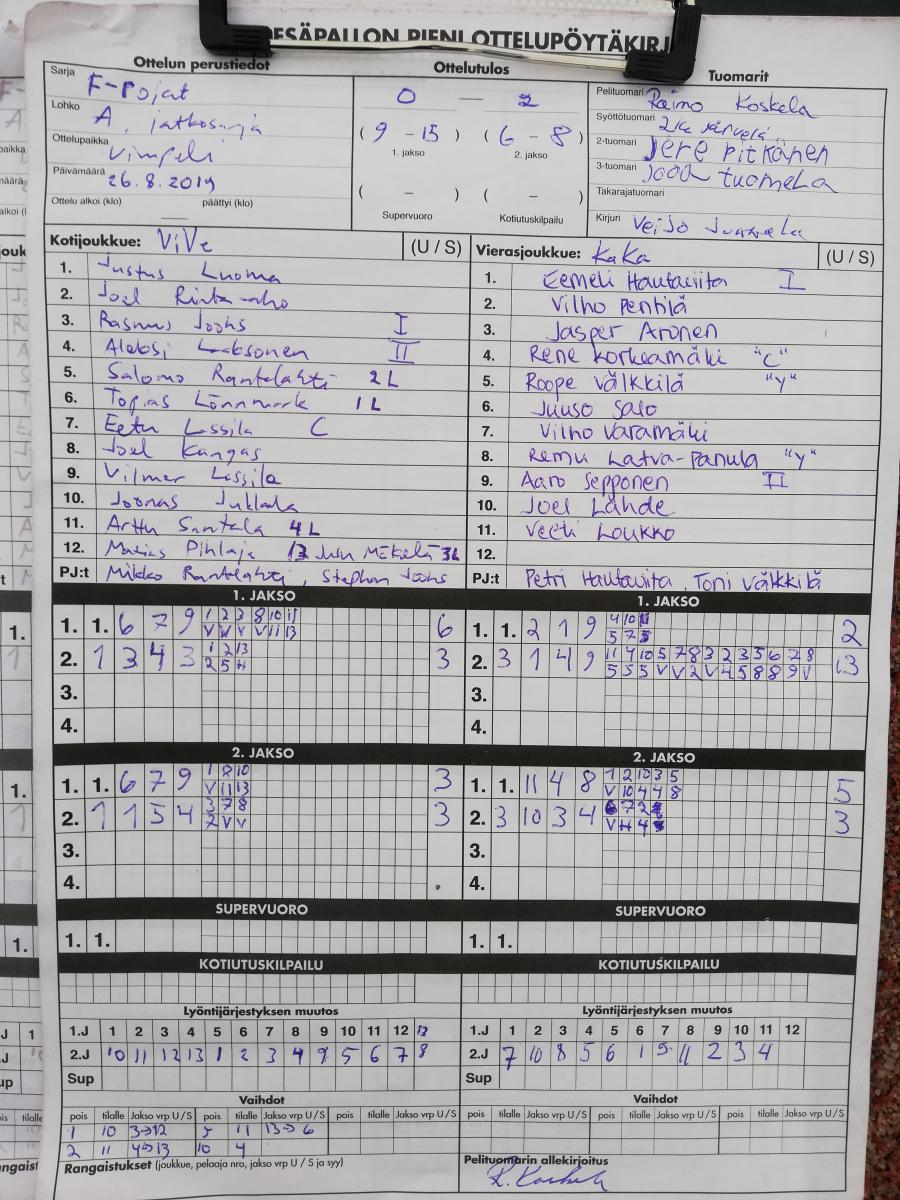 PESÄPALLON PIENI OTTELUPÖYTÄKIRJ
Ottelun perustiedot
Ottelutulos
Tuomarit
Sarja F-Pojat
Lohko A, jatkosarja
Ottelupaikka Vimpeli
Päivämäärä 26.8.2019
Ottelu alkoi (klo) — päättyi (klo)
0 — 2
( 9 – 15 ) ( 6 – 8 )
1. jakso 2. jakso
( – ) ( – )
Supervuoro Kotiutuskilpailu
Pelituomari Raimo Koskela
Syöttötuomari
2-tuomari Jere Pitkänen
3-tuomari Jooa Tuomela
Takarajatuomari
Kirjuri Veijo
Kotijoukkue: ViVe (U / S)
1. Justus Luoma
2. Joel Rinta-aho
3. Rasmus Joohs I
4. Aleksi Laaksonen II
5. Salomo Rantalahti 2L
6. Topias Lönnmark 1L
7. Eetu Lassila C
8. Joel Kangas
9. Vilmer Lassila
10. Joonas
11. Arttu Santala 4L
12. Matias Pihlaja 13 Mäkelä 3L
PJ:t Mikko Rantalahti, Stephan Joohs
Vierasjoukkue: KaKa (U / S)
1. Eemeli Hautaviita I
2. Vilho Penttilä
3. Jasper Aronen
4. Rene Korkeamäki "C"
5. Roope Välkkilä "Y"
6. Juuso Salo
7. Vilho Varamäki
8. Remu Latva-Panula "Y"
9. Aaro Sepponen II
10. Joel Lähde
11. Veeti Loukko
12.
PJ:t Petri Hautaviita, Toni Välkkilä
1. JAKSO
1. 1. 6 7 9 1 2 3 8 10 11 6
V V V V 11 13
2. 1 3 4 3 1 2 13 3
2 5 4
3.
4.
1. JAKSO
1. 1. 2 1 9 4 10 2
5 7 5
2. 3 1 4 9 11 4 10 5 7 8 3 2 3 5 6 7 8 13
5 5 5 V V 2 V 4 5 8 8 9 V
3.
4.
2. JAKSO
1. 1. 6 7 9 1 8 10 3
V 11 13
2. 1 1 5 4 3 7 8 3
2 V V
3.
4.
2. JAKSO
1. 1. 11 4 8 1 2 10 3 5 5
V 10 4 4 8
2. 3 10 3 4 6 7 2 3
V 4
3.
4.
SUPERVUORO
1. 1.
SUPERVUORO
1. 1.
KOTIUTUSKILPAILU
KOTIUTUSKILPAILU
Lyöntijärjestyksen muutos
1.J 1 2 3 4 5 6 7 8 9 10 11 12 13
2.J 10 11 12 13 1 2 3 4 9 5 6 7 8
Sup
Lyöntijärjestyksen muutos
1.J 1 2 3 4 5 6 7 8 9 10 11 12
2.J 7 10 8 5 6 1 9 11 2 3 4
Sup
Vaihdot
pois tilalle Jakso vrp U / S pois tilalle Jakso vrp U / S pois tilalle Jakso vrp U / S
1 10 3→12 5 11 13→6
2 11 4→13 10 4
Vaihdot
pois tilalle Jakso vrp U / S pois tilalle Jakso vrp U / S pois tilalle Jakso vrp U / S
Rangaistukset (joukkue, pelaaja nro, jakso vrp U / S ja syy)
Pelituomarin allekirjoitus
R. Koskela